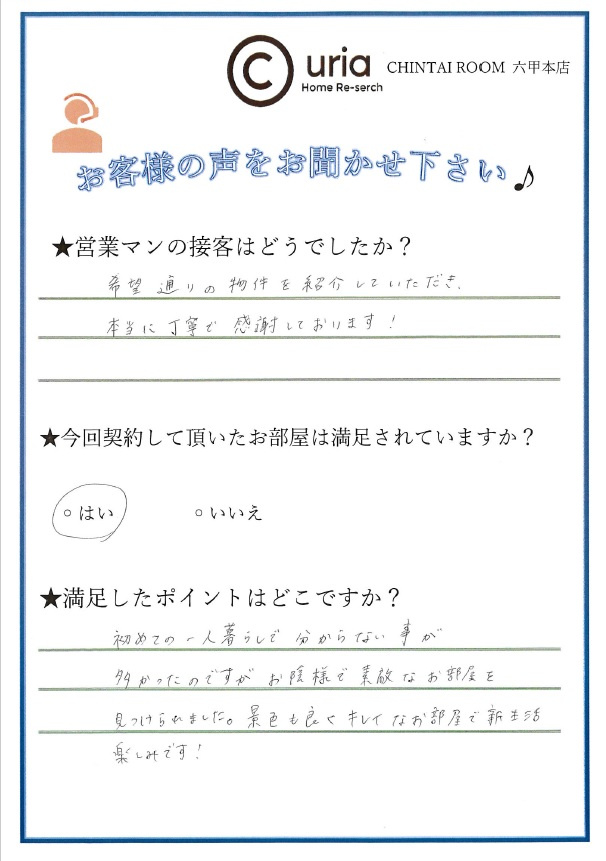 Curia
Home Re-serch
CHINTAI ROOM 六甲本店
お客様の声をお聞かせ下さい♪
★営業マンの接客はどうでしたか？
希望通りの物件を紹介していただき、
本当に丁寧で感謝しております！
★今回契約して頂いたお部屋は満足されていますか？
○はい ○いいえ
★満足したポイントはどこですか？
初めての一人暮らしで分からない事が
多かったのですがお陰様で素敵なお部屋を
見つけられました。景色も良くキレイなお部屋で新生活
楽しみです！